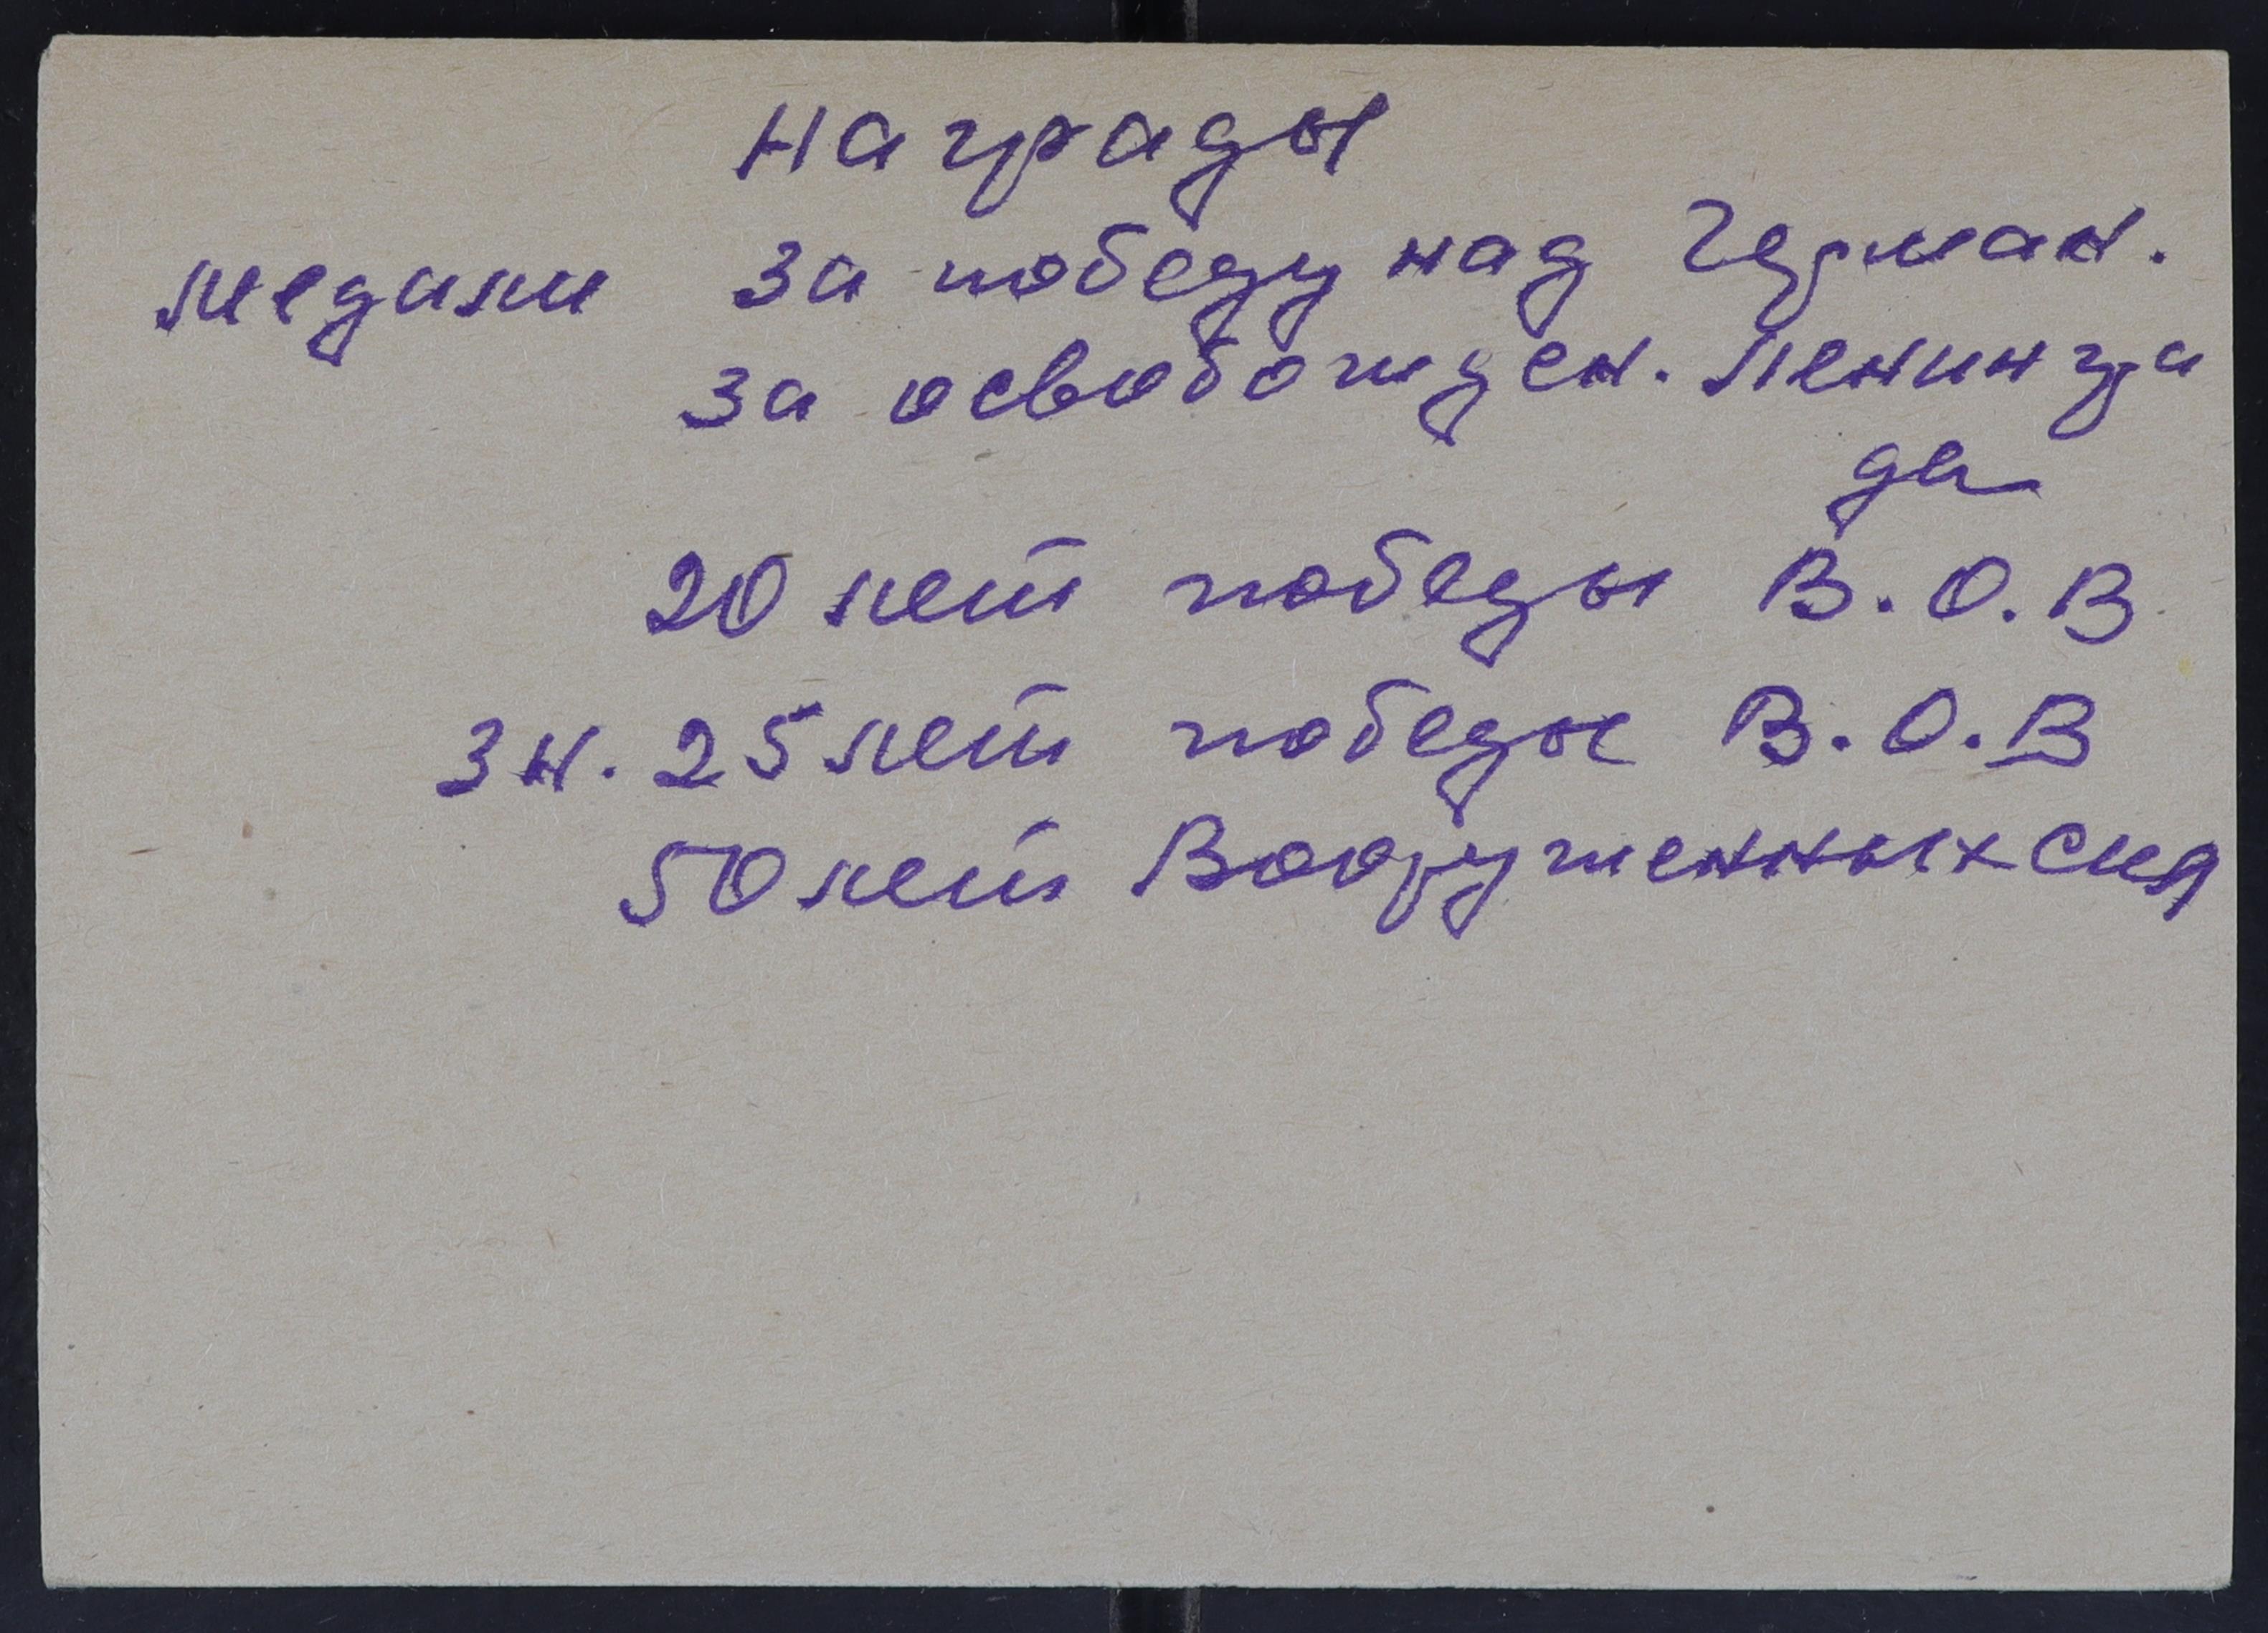 Награды
медали за победу над Герман.
за освобожден. Ленингра
да
20 лет победы В.О.В
зн. 25 лет победы В.О.В
50 лет Вооруженных сил